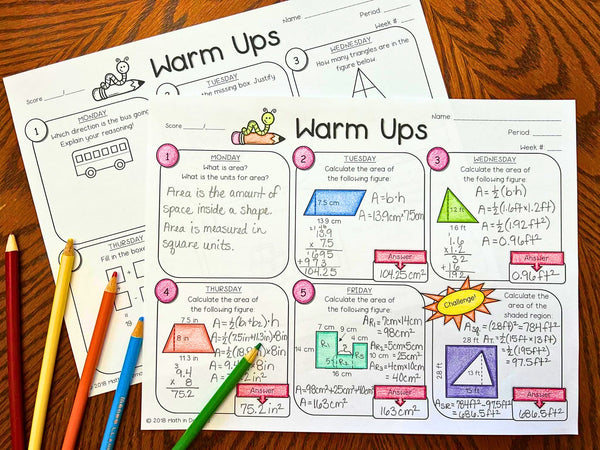 Name
Period:
Week #:
Warm Ups
Score
1
MONDAY
Which direction is the bus going
Explain your reasoning!
TUESDAY
the missing box. Justify
3
WEDNESDAY
How many triangles are in the
figure below.
THURSDAY
Fill in the box
Name
Period:
Week #:
Score
Warm Ups
1
MONDAY
What is area?
What is the units for area?
Area is the amount of
space inside a shape.
Area is measured in
square units.
2
TUESDAY
Calculate the area of
the following figure:
7.5 cm
13.9 cm
A=b·h
A=13.9cm·7.5cm
13.9
x 7.5
695
+973
104.25
Answer
104.25cm²
3
WEDNESDAY
Calculate the area of
the following figure:
1.2 ft
1.6 ft
A=½(b·h)
A=½(1.6ft×1.2ft)
A=½(1.92ft²)
A=0.96ft²
1.6
x1.2
32
+16
192
Answer
0.96ft²
4
THURSDAY
Calculate the area of
the following figure:
7.5 in
8in
11.3 in
A=½(b₁+b₂)·h
A=½(7.5in+11.3in)×8in
9.4
x 8
75.2
Answer
75.2in²
5
FRIDAY
Calculate the area of
the following figure:
7 cm
9 cm
4cm
14 cm
10 cm
16 cm
R₁
R₂
R₃
AR₁=7cm×14cm
=98cm²
AR₂=5cm×5cm
=25cm²
AR₃=4cm×10cm
=40cm²
A=98cm²+25cm²+40cm²
A=163cm²
Answer
163cm²
Challenge!
Calculate
the area of
the shaded region:
28 ft
13 ft
15 ft
28 ft
=(28ft)²=784ft²
=½(15ft×13ft)
=½(195ft²)
=97.5ft²
=784ft²-97.5ft²
=686.5ft²
Answer
686.5ft²
© 2018 Math in De